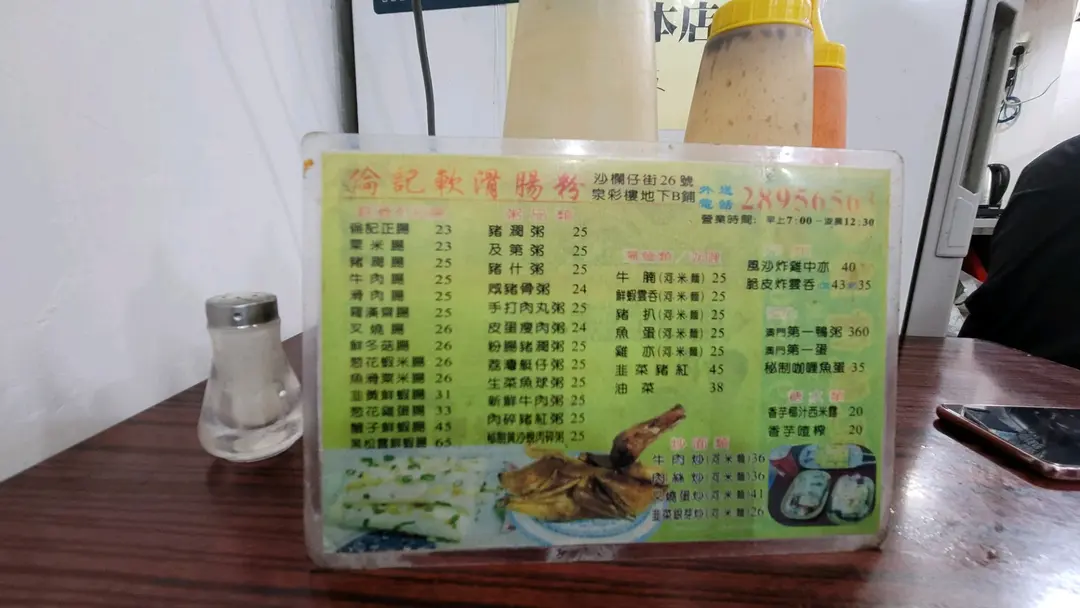 本店
倫記軟滑腸粉
沙欄仔街26號
泉彩樓地下B鋪
外送
電話
2895656
營業時間: 早上7:00-凌晨12:30
倫記正腸 23
粟米腸 23
豬潤腸 25
牛肉腸 25
滑肉腸 25
羅漢齋腸 25
叉燒腸 26
鮮冬菇腸 26
葱花蝦米腸 26
魚滑粟米腸 26
韭黃鮮蝦腸 31
葱花雞蛋腸 33
蟹子鮮蝦腸 45
黑松露鮮蝦腸 65
粥品類
豬潤粥 25
及第粥 25
豬什粥 25
咸豬骨粥 24
手打肉丸粥 25
皮蛋瘦肉粥 24
粉腸豬潤粥 25
荔灣艇仔粥 25
生菜魚球粥 25
新鮮牛肉粥 25
肉碎豬紅粥 25
肉碎粥 25
牛腩(河米麵) 25
鮮蝦雲吞(河米麵) 25
豬扒(河米麵) 25
魚蛋(河米麵) 25
雞亦(河米麵) 25
韭菜豬紅 45
油菜 38
炒面類
牛肉炒(河米麵) 36
肉絲炒(河米麵) 36
叉燒蛋炒(河米麵) 41
韭菜銀芽炒(河米麵) 26
風沙炸雞中亦 40
脆皮炸雲吞 43 35
澳門第一鴨粥 360
澳門第一蛋
秘制咖喱魚蛋 35
香芋椰汁西米露 20
香芋喳榨 20